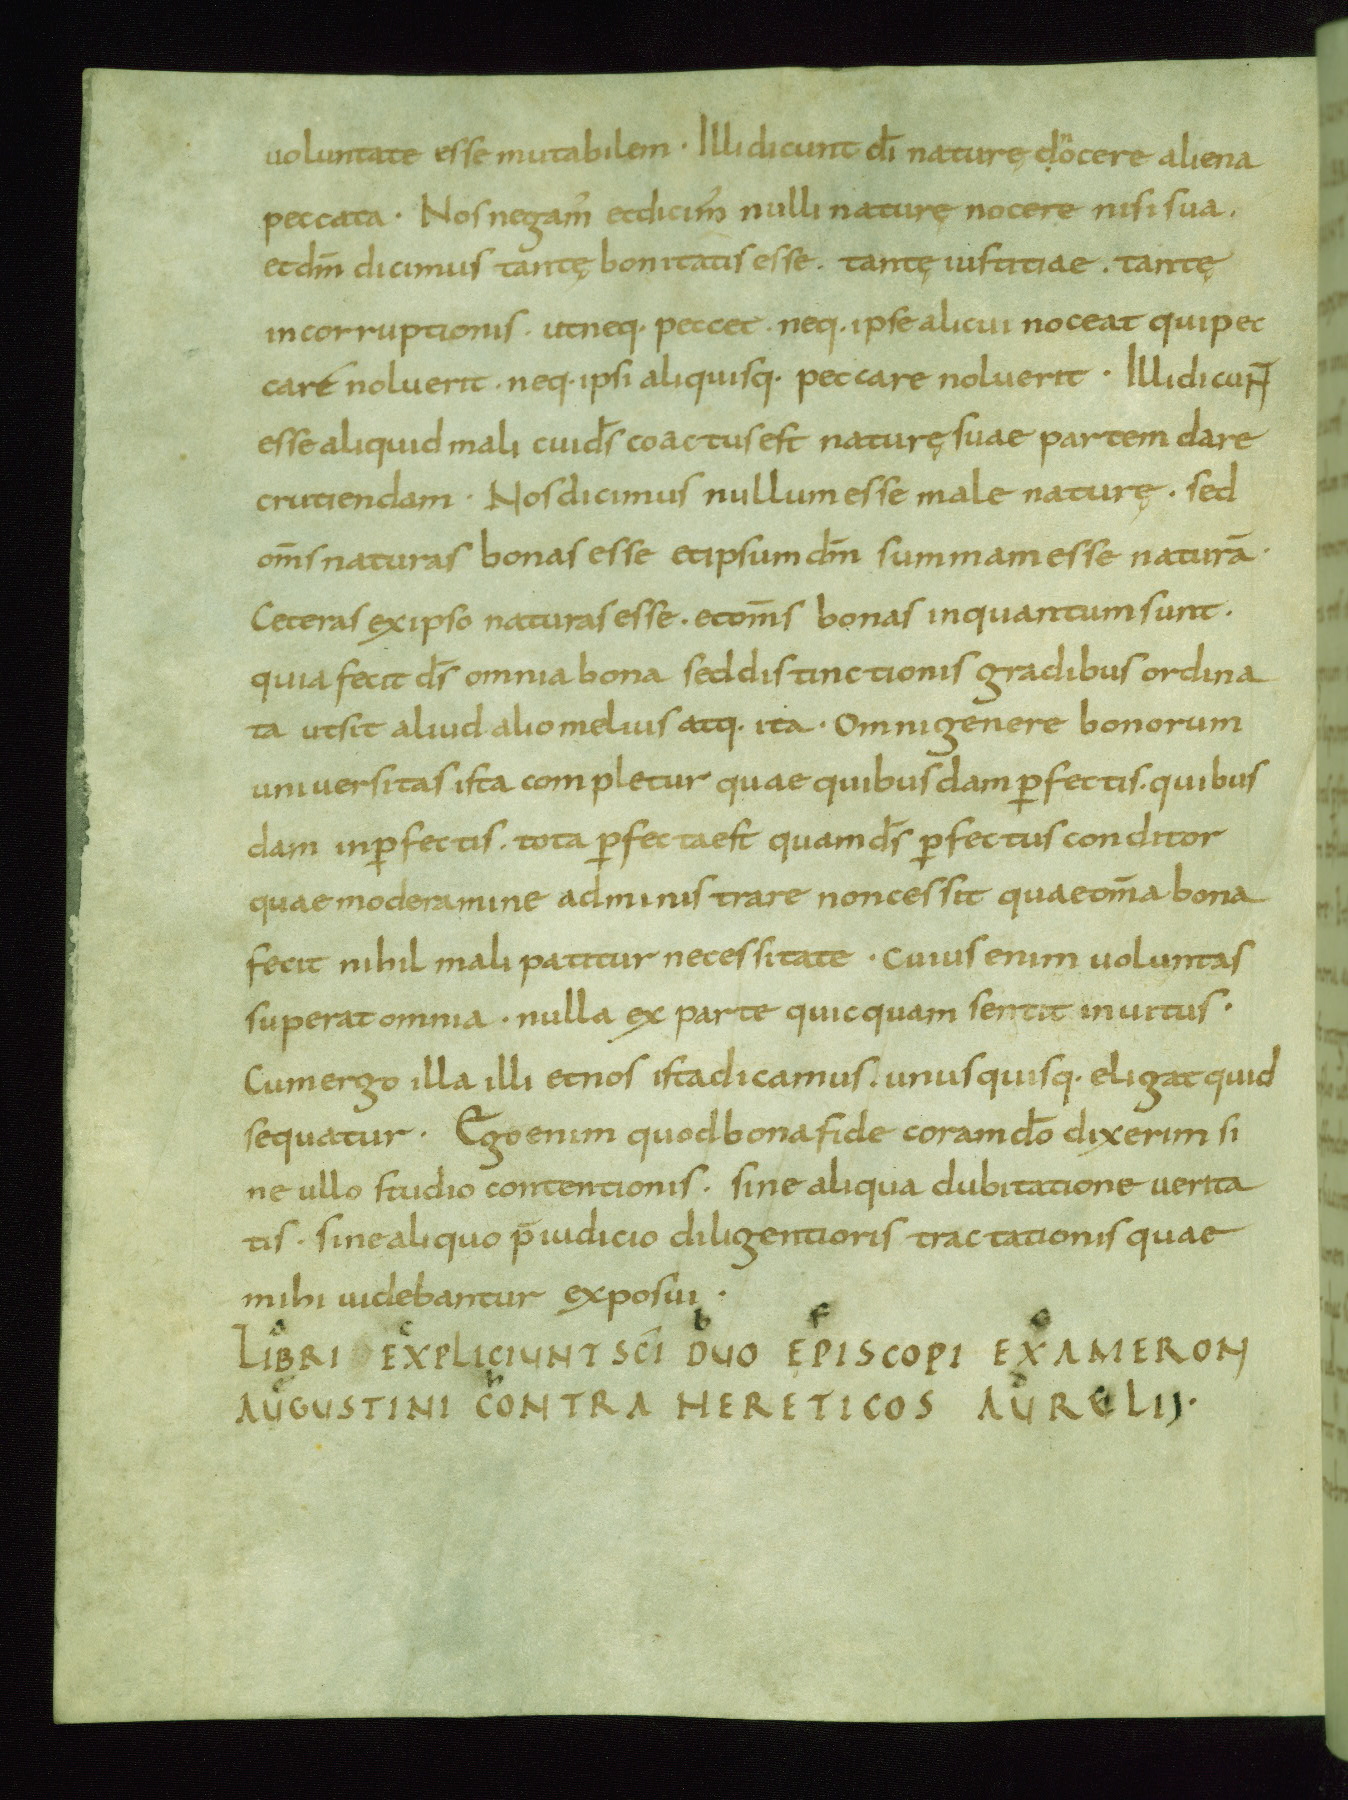 uoluntate esse mutabilem · Illi dicunt dī naturę dnocere aliena
peccata · Nos negam̄ et dicim̄ nulli naturę nocere nisi sua .
et dm̄ dicimus tantę bonitatis esse . tantę iustitiae . tantę
incorruptionis . ut neq· peccet . neq· ipse alicui noceat qui pec
care noluerit . neq· ipsi aliquisq· peccare noluerit · Illi dicun̄t
esse aliquid mali cui ds̄ coactus est naturę suae partem dare
crutiendam · Nos dicimus nullum esse male naturę . sed
om̄s naturas bonas esse et ipsum dm̄ summam esse naturā ·
Ceteras ex ipso naturas esse . et om̄s bonas inquantum sunt .
quia fecit ds̄ omnia bona sed distinctionis gradibus ordina
ta ut sit aliud alio melius atq· ita · Omni genere bonorum
uniuersitas ista completur quae quibusdam p̄fectis . quibus
dam inp̄fectis . tota p̄fecta est quam ds̄ p̄fectus conditor
quae moderamine administrare non cessit quae om̄a bona
fecit nihil mali patitur necessitate · Cuius enim uoluntas
superat omnia · nulla ex parte quicquam sentit inuitus ·
Cum ergo illa illi et nos ista dicamus . unusquisq· eligat quid
sequatur · Ego enim quod bona fide coram dō dixerim si
ne ullo studio contentionis . sine aliqua dubitatione uerita
tis . sine aliquo p̄iudicio diligentioris tractationis quae
mihi uidebantur exposui ·
LIBRI EXPLICIUNT SCĪ DUO EPISCOPI EXAMERON
AUGUSTINI CONTRA HERETICOS AURELIJ·